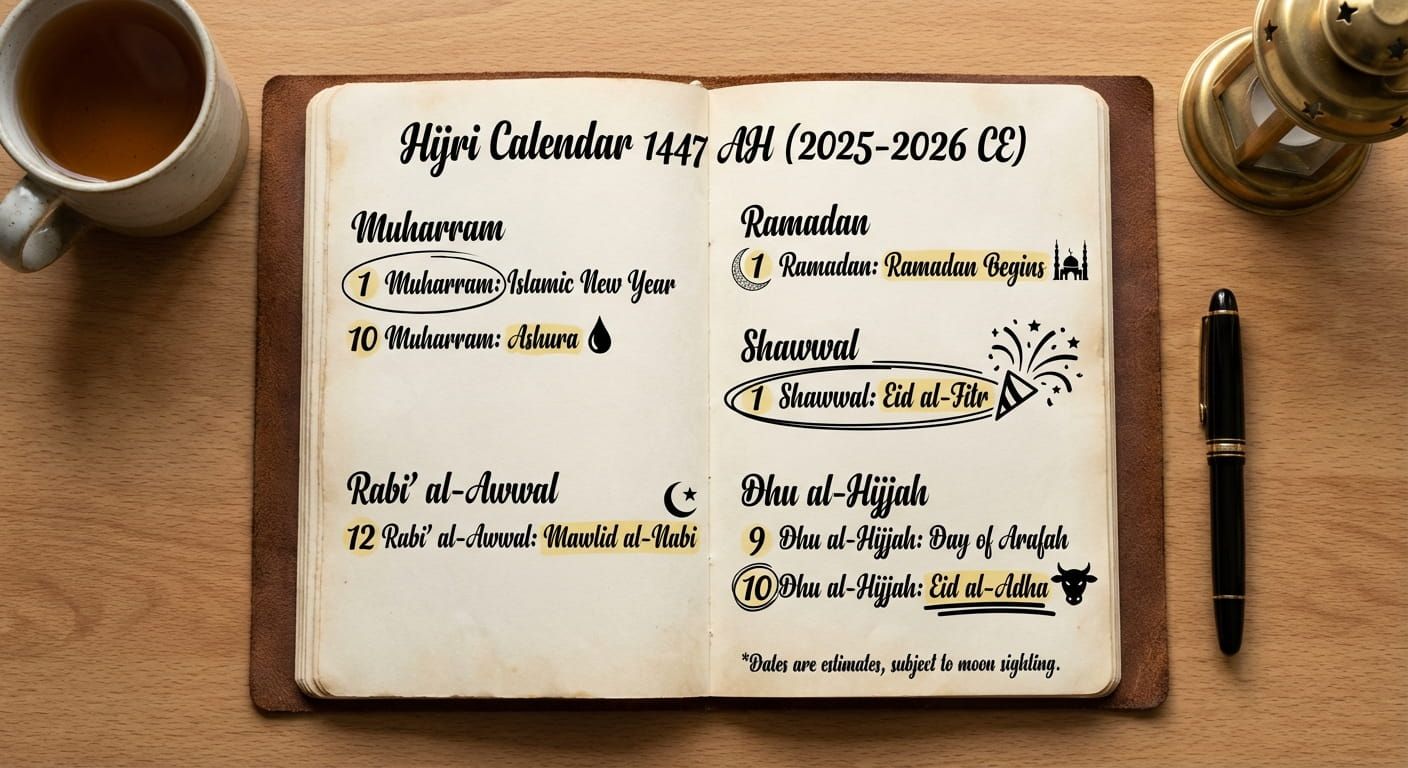 Hijri Calendar 1447 AH (2025-2026 CE)
Muharram
1 Muharram: Islamic New Year
10 Muharram: Ashura
Rabi' al-Awwal
12 Rabi' al-Awwal: Mawlid al-Nabi
Ramadan
1 Ramadan: Ramadan Begins
Shawwal
1 Shawwal: Eid al-Fitr
Dhu al-Hijjah
9 Dhu al-Hijjah: Day of Arafah
10 Dhu al-Hijjah: Eid al-Adha
*Dates are estimates, subject to moon sighting.